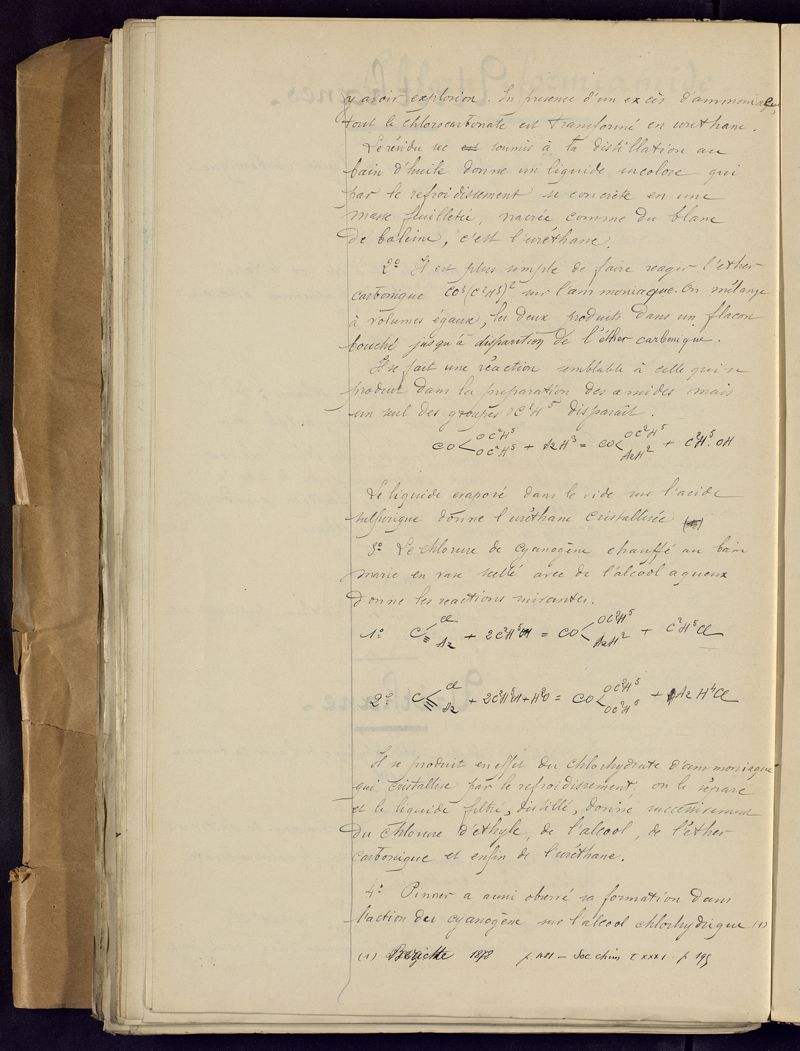 y avoir explosion. En presence d'un excès d'ammoniaque,
tout le chlorocarbonate est transformé en uréthane.
Le résidu sec soumis à la distillation au
bain d'huile donne un liquide incolore qui
par le refroidissement se concrète en une
masse feuilletée, nacrée comme du blanc
de baleine, c'est l'uréthane.
2º Il est plus simple de faire reagir l'ether
carbonique CO³(C²H⁵)² sur l'ammoniaque. On mélange
à volumes égaux, les deux produits dans un flacon
bouché jusqu'à disparition de l'éther carbonique.
Il se fait une réaction semblable à celle qui se
produit dans la préparation des amides mais
un seul des groupes OC²H⁵ disparaît.
CO< OC²H⁵ OC²H⁵ + AzH³ = CO< OC²H⁵ AzH² + C²H⁵.OH
Le liquide evaporé dans le vide sur l'acide
sulfurique donne l'uréthane cristallisée
3º Le chlorure de cyanogène chauffé au bain
marie en vase scellé avec de l'alcool aqueux
donne les reactions suivantes.
1º C Cl Az + 2C²H⁵OH = CO< OC²H⁵ AzH² + C²H⁵Cl
2º C Cl Az + 2C²H⁵OH + H²O = CO< OC²H⁵ OC²H⁵ + AzH⁴Cl
Il se produit en effet du chlorhydrate d'ammoniaque
qui cristallise par le refroidissement, on le sépare
et le liquide filtré, distillé, donne successivement
du chlorure d'éthyle, de l'alcool, de l'éther
carbonique et enfin de l'uréthane.
4º Pinner a aussi observé sa formation dans
l'action du cyanogène sur l'alcool chlorhydrique (1)
(1) 1878 p 1481 – Soc chim t XXXI p 195